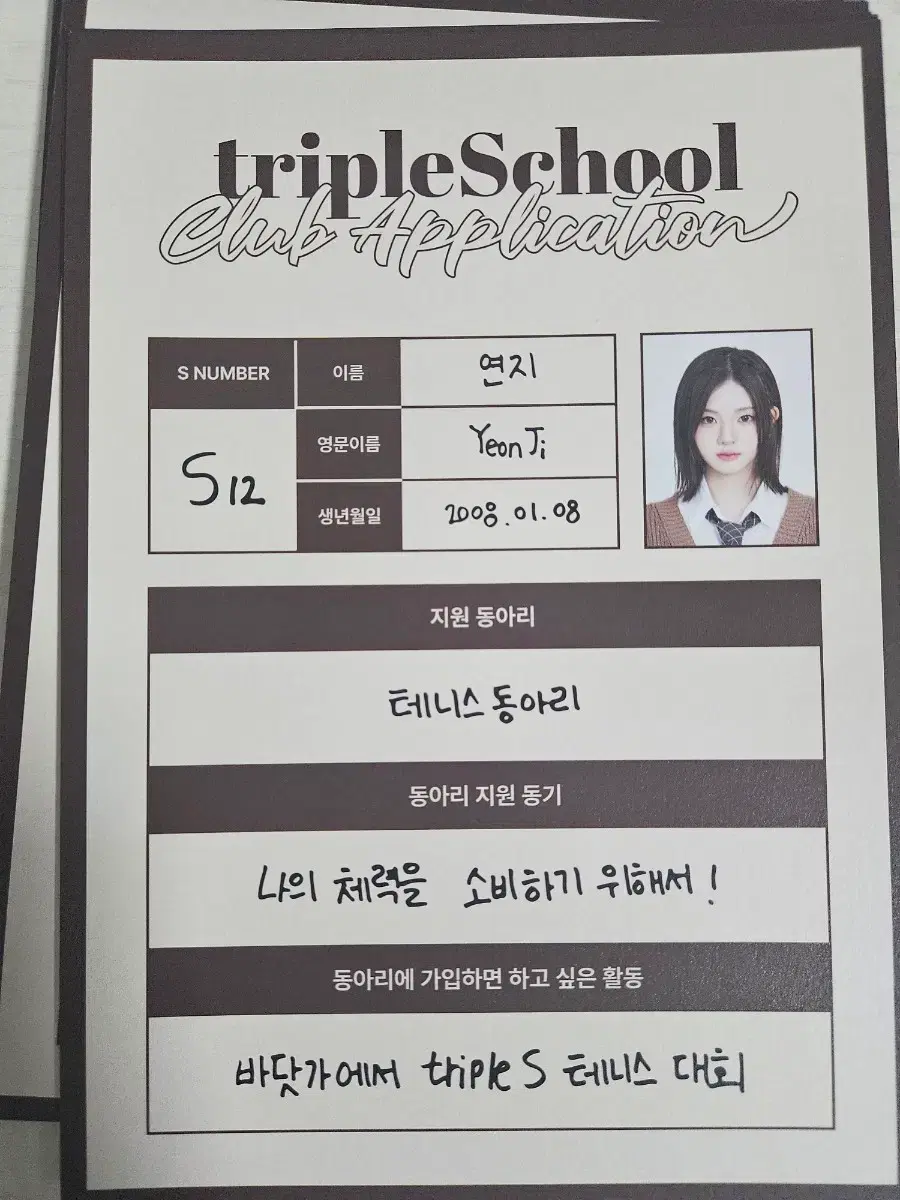 tripleSchool
Club Application
S NUMBER
S12
이름
연지
영문이름
YeonJi
생년월일
2008.01.08
지원 동아리
테니스 동아리
동아리 지원 동기
나의 체력을 소비하기 위해서!
동아리에 가입하면 하고 싶은 활동
바닷가에서 tripleS 테니스 대회